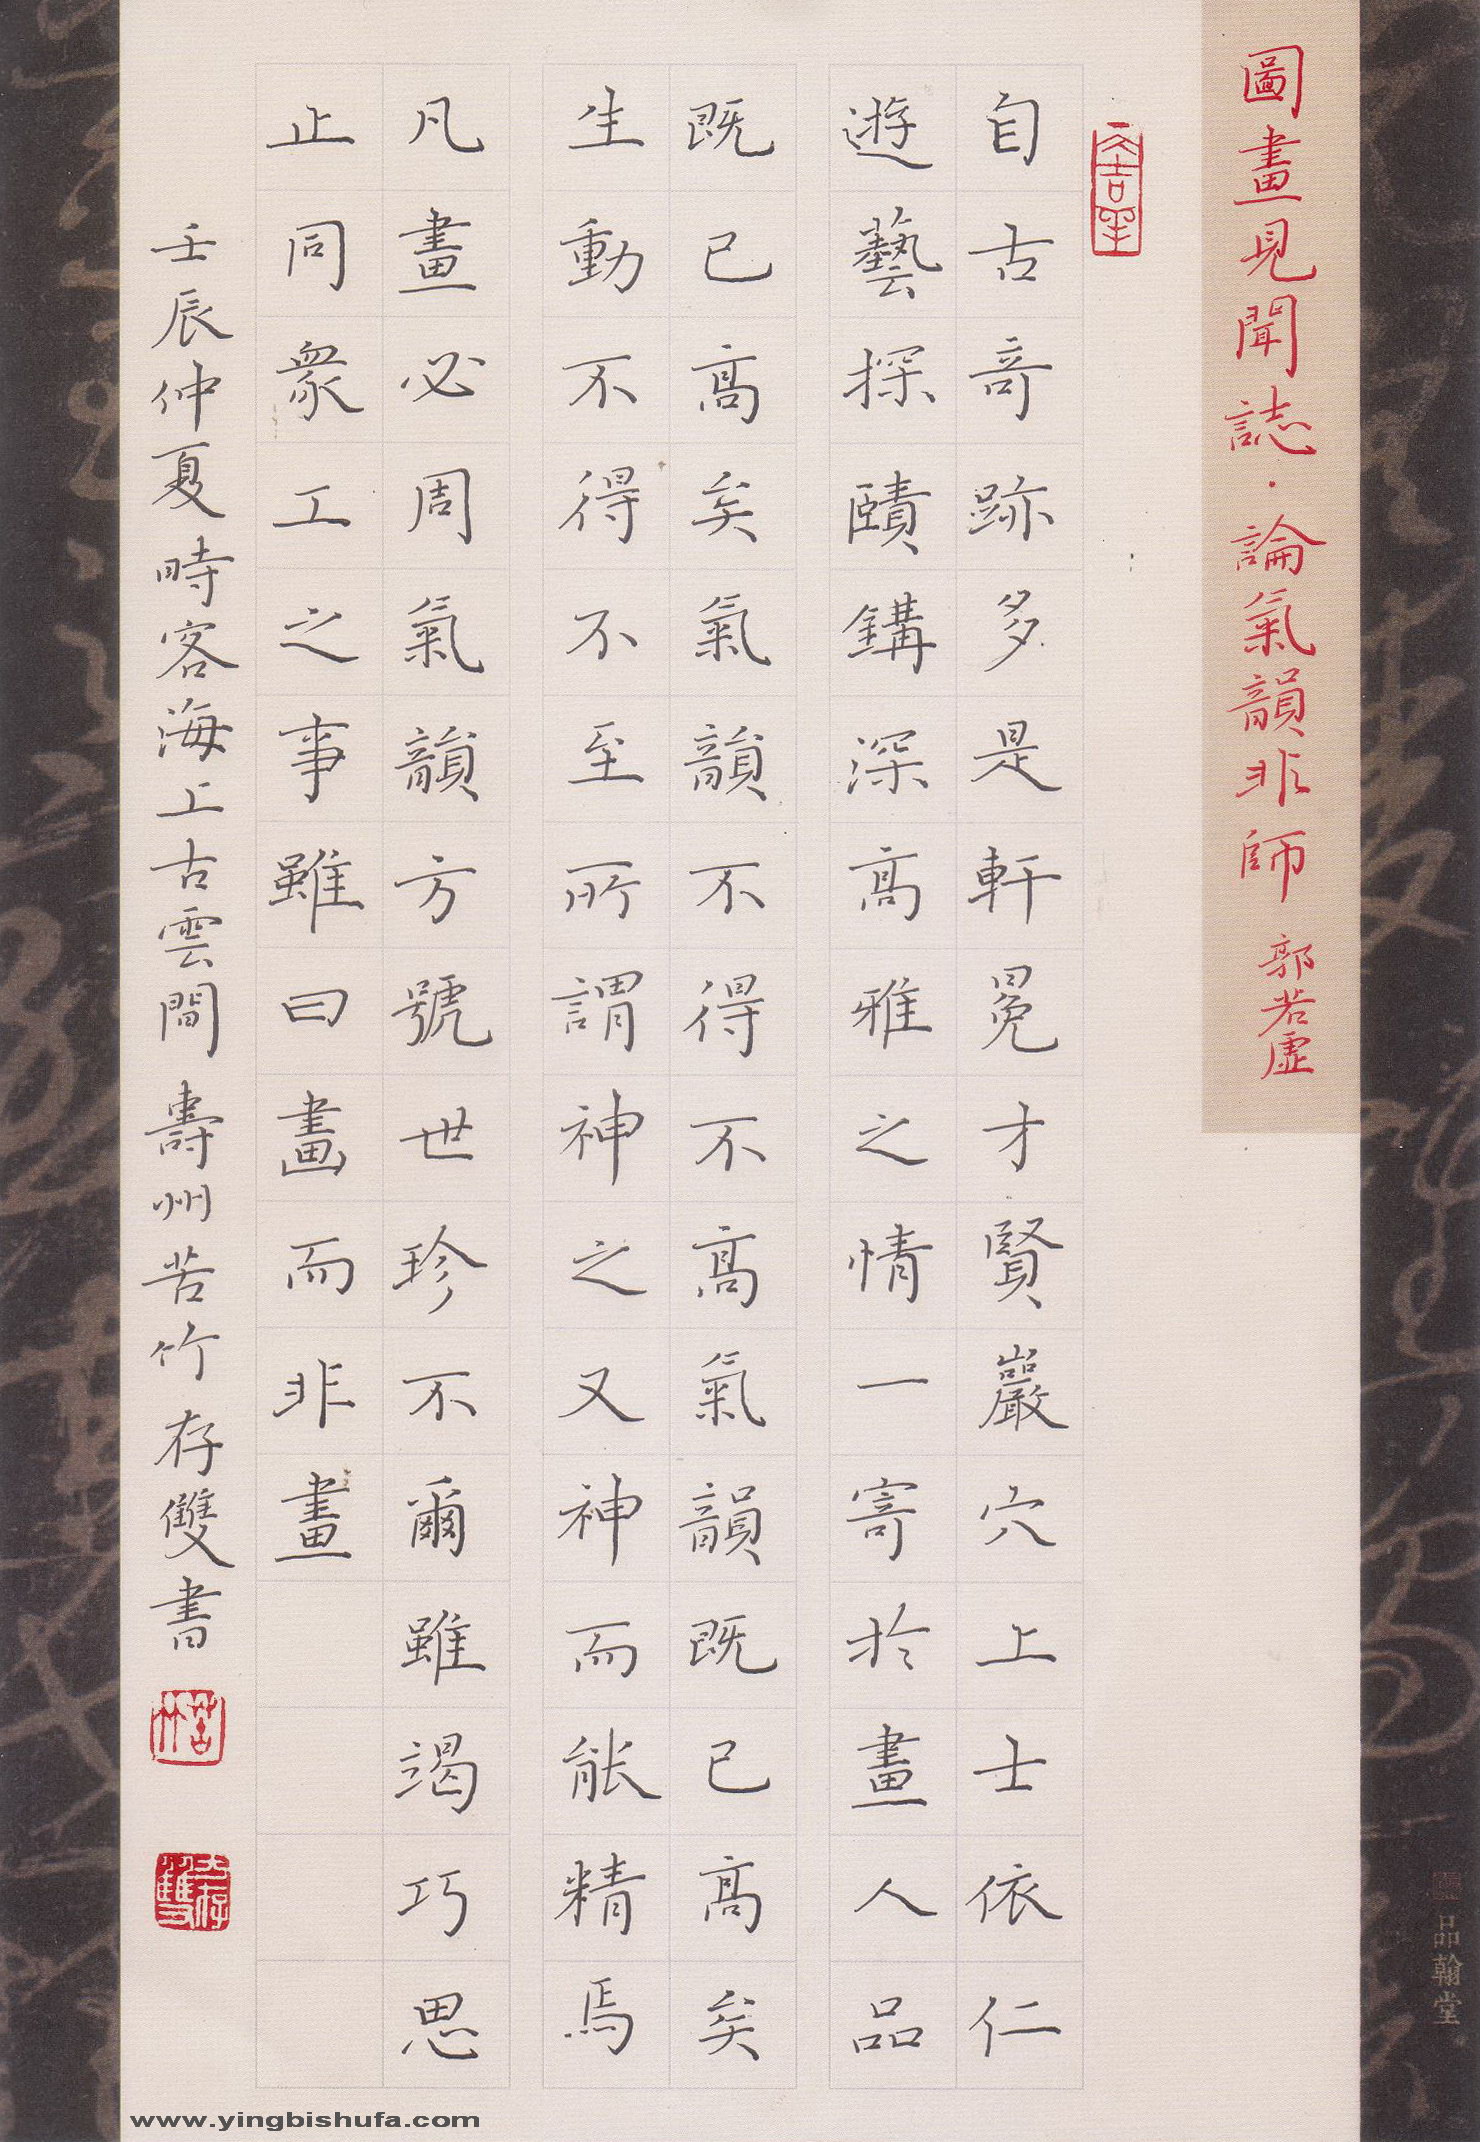 圖畫見聞誌·論氣韻非師 郭若虛
自古奇跡多是軒冕才賢巖穴上士依仁
遊藝探賾鉤深高雅之情一寄於畫人品
既已高矣氣韻不得不高氣韻既已高矣
生動不得不至所謂神之又神而能精焉
凡畫必周氣韻方號世珍不爾雖竭巧思
止同衆工之事雖曰畫而非畫
壬辰仲夏時客海上古雲間壽州苦竹存雙書
苦竹
品翰堂
www.yingbishufa.com